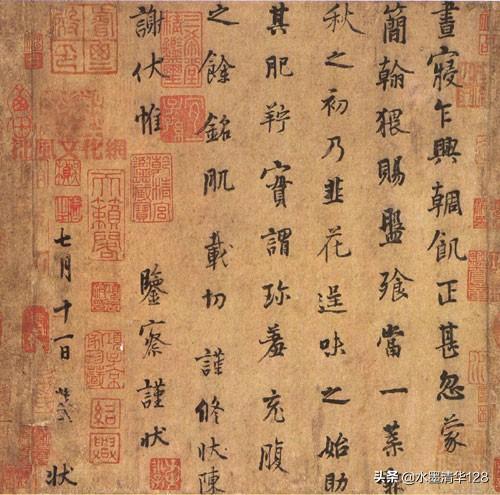 晝寢乍興輖飢正甚忽蒙
簡翰猥賜盤飧當一葉報
秋之初乃韭花逞味之始助
其肥羜實謂珍羞充腹
之餘銘肌載切謹修狀陳
謝伏惟
鑒察謹狀
七月十一日 狀
天籟閣
風文化網
头条 @水墨清华128